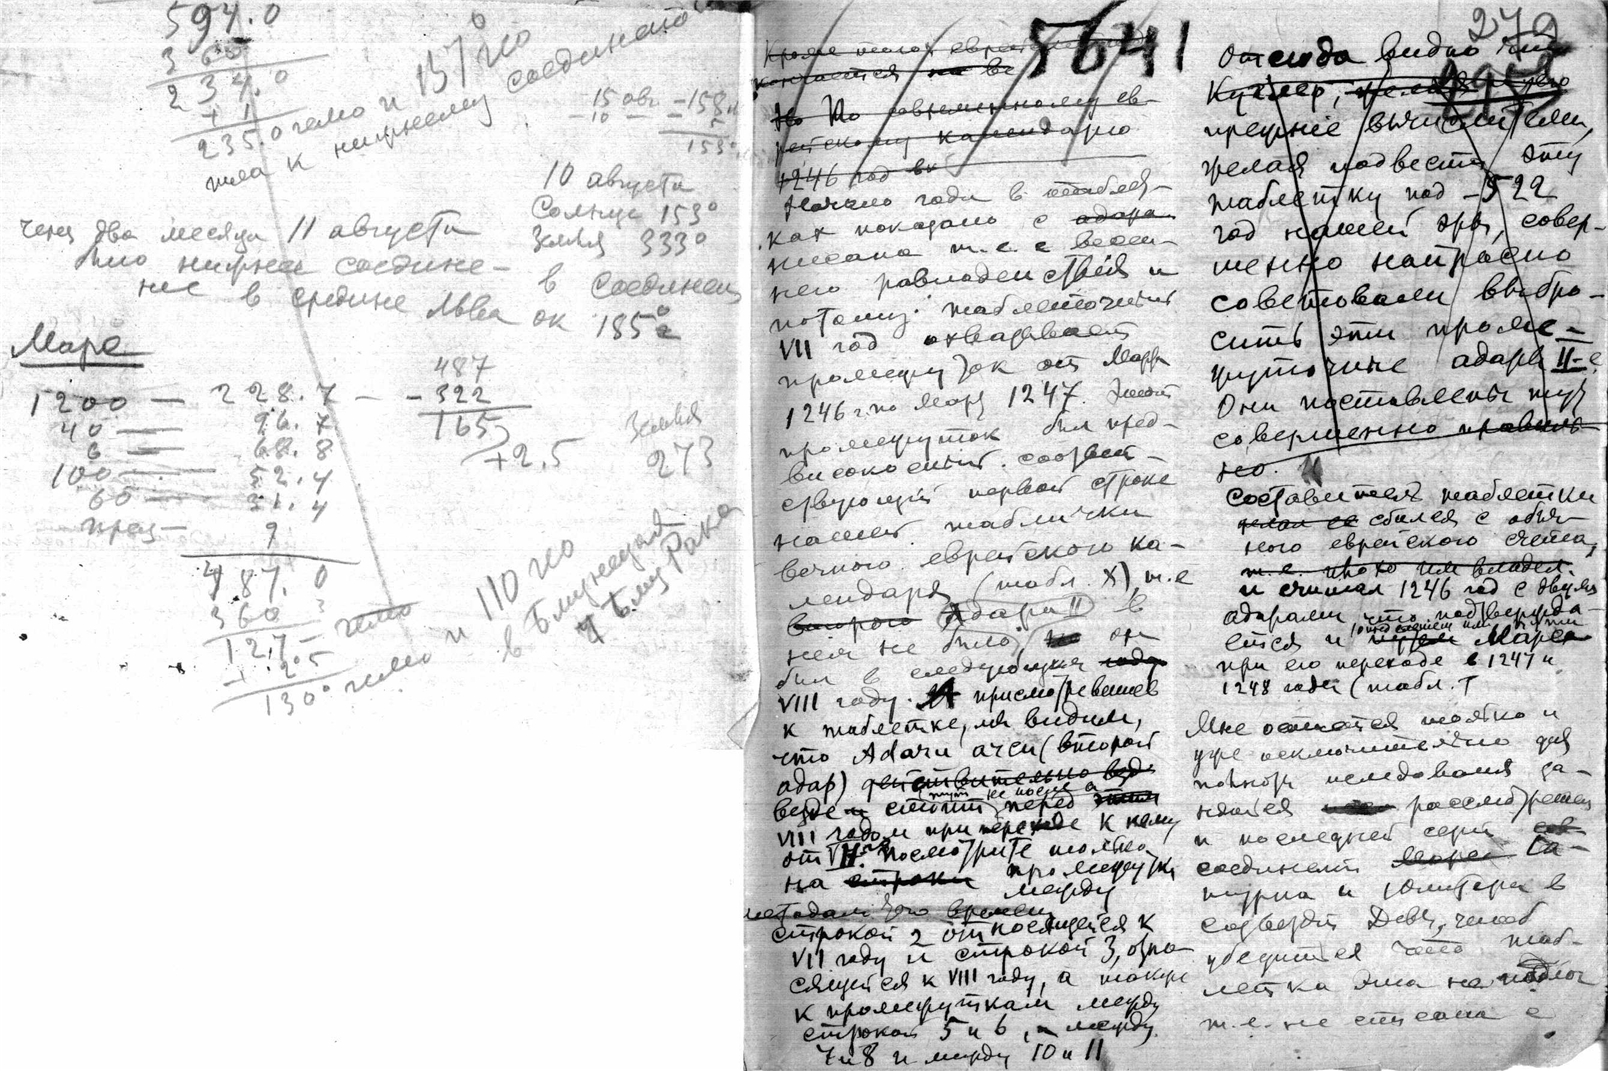 594.0
360
234.0
+ 1
235.0 гелио и 157 гео
шла к нижнему соединению
15 авг – 158
– 10 – 5
153°
10 августа
Солнце 153°
Земля 333°
в соединен
ок 185
через два месяца 11 августа
было нижнее соедине-
ние в средине Льва
Марс
1200 — 228.7 –
40 — 96.7
6 — 68.8
100 — 52.4
60 — 31.4
9
487.0
360
127 – гелио
+ 2.5
130° гелио и 110 гео
в Близнецах
487
– 322
165
+ 2.5
Земля
273
5641
Кроме того евр
кончается на ве
Но По современному ев-
рейскому календарю
1246 год
Начало года в таблет-
ках показано с адара
нисана т.е. с весен-
него равноденствия и
потому табличный
VII год охватывает
промежуток от Марта
1246 г. по Март 1247. Этот
промежуток был пред-
високосный соответ-
ствующий первой строке
нашей таблички
вечного еврейского ка-
лендаря (табл. X), т.е
второго Адара II в
нем не было, но он
был в следующем году
VIII году. А присмотревшись
к таблетке, мы видим,
что Adaru арки (второй
адар) действительно вед
везде и стоит перед этим
VIII годом при переходе к нему
от VII. Посмотрите только
на строки промежутки
между
строкой 2 относящейся к
VII году и строкой 3, отно-
сящейся к VIII году, а также
к промежуткам между
строкой 5 и 6, и между
7 и 8 и между 10 и 11
279
Отсюда видно что
Куглер, желая
прежние вычислители,
желая подвести эту
таблетку под –522
год нашей эры, совер-
шенно напрасно
советовали выбро-
сить эти проме-
жуточные адары II-е
Они поставлены тут
совершенно правиль-
но.
Составитель таблетки
сбился с обыч-
ного еврейского счета,
т.е. плохо им владел.
и считал 1246 год с двумя
адарами что подтвержда-
ется и Марса
при его переходе в 1247 и
1248 годы (табл. T
Мне остается только и
уже исключительно для
полноты исследования за-
няться рассмотрением
и последней серии
соединений Марса Са-
турна и Юпитера в
созвездии Девы, чтоб
убедиться что таб-
летка эта не подлог
т.е. не списана с